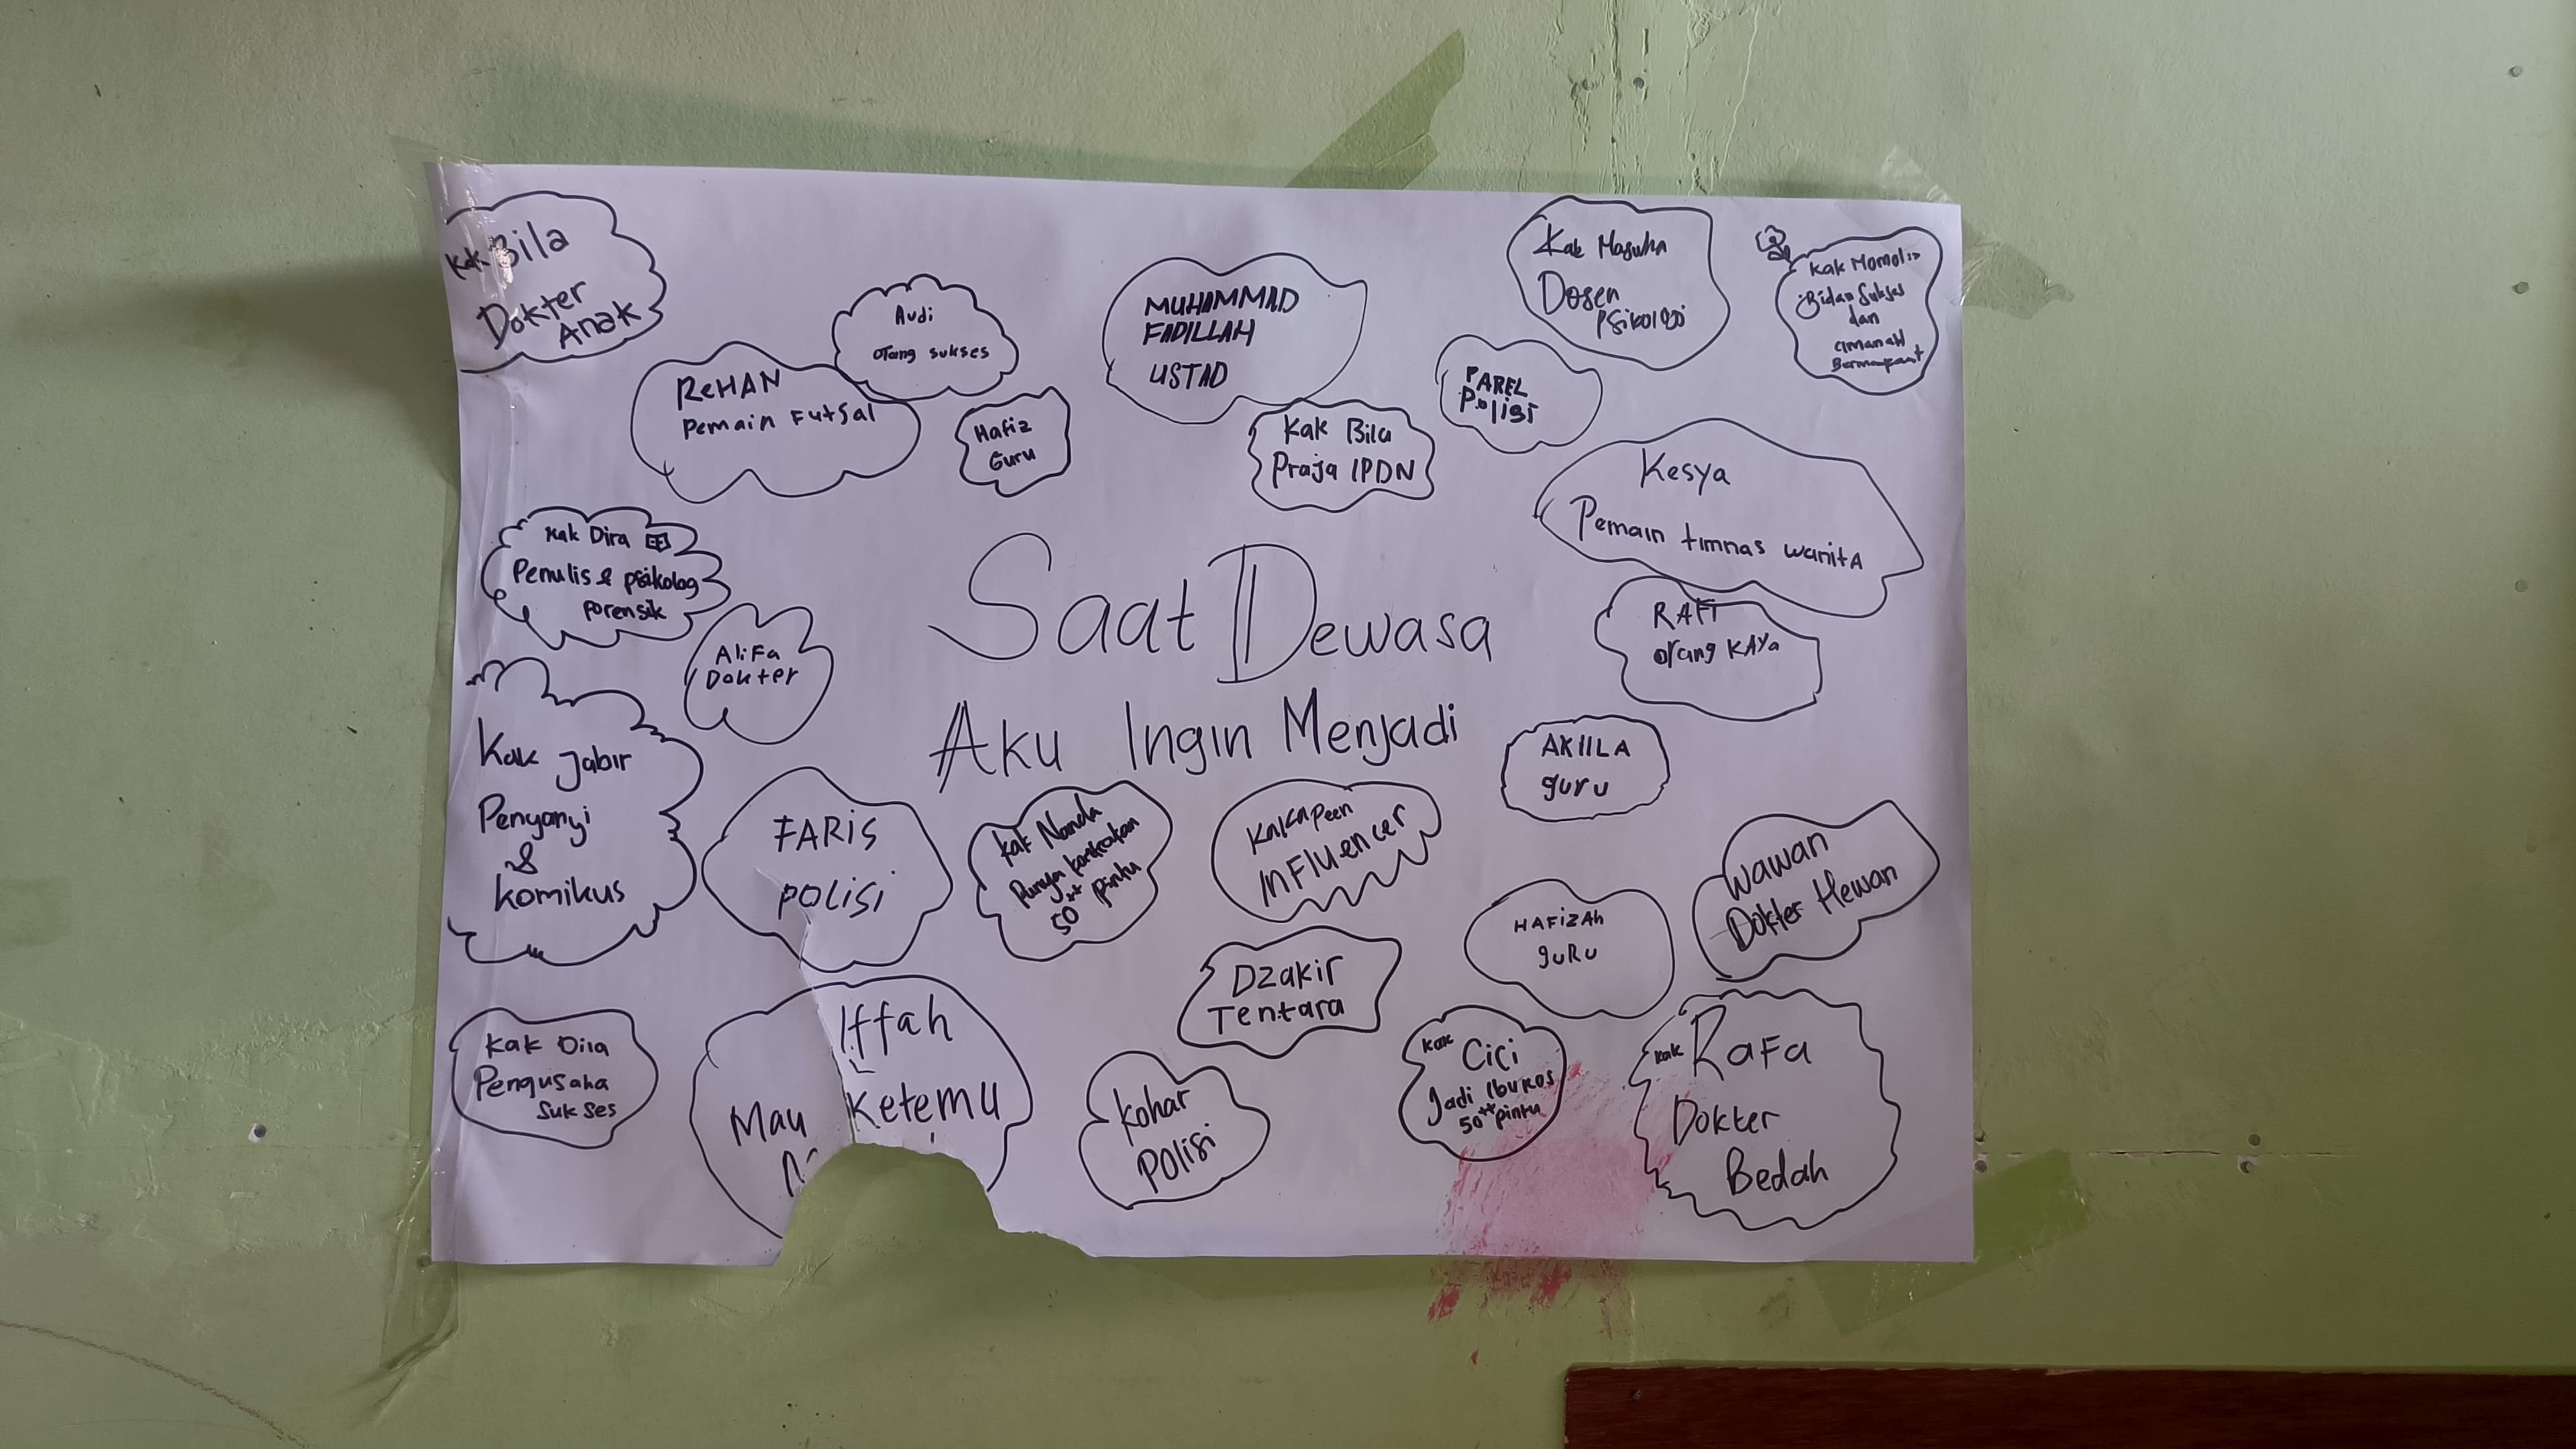 Kak Bila
Dokter
Anak
Audi
orang sukses
REHAN
Pemain Futsal
Hafiz
Guru
MUHAMMAD
FADILLAH
USTAD
Kak Bila
Praja IPDN
Kak
Dosen
Psikologi
PAREL
Polisi
Kak Momol :>
Bidan Sukses
dan
amanah
Kesya
Pemain timnas wanitA
Kak Dira
Penulis & psikolog
Forensik
AliFa
Dokter
Saat Dewasa
Aku Ingin Menjadi
RAFI
orang KAYa
AKIILA
guru
Kak Jabir
Penyanyi
&
Komikus
FARIS
POLISI
Kak Nanda
Punya kontrakan
50++ pintu
Kaka Peen
INFluencer
HAFIZAh
guRu
Wawan
Dokter Hewan
Dzakir
Tentara
Kak Dila
Pengusaha
Sukses
Iffah
Mau Ketemu
Kohar
POlisi
Kak Cici
Jadi Ibu Kos
50++ pintu
Kak RaFa
Dokter
Bedah